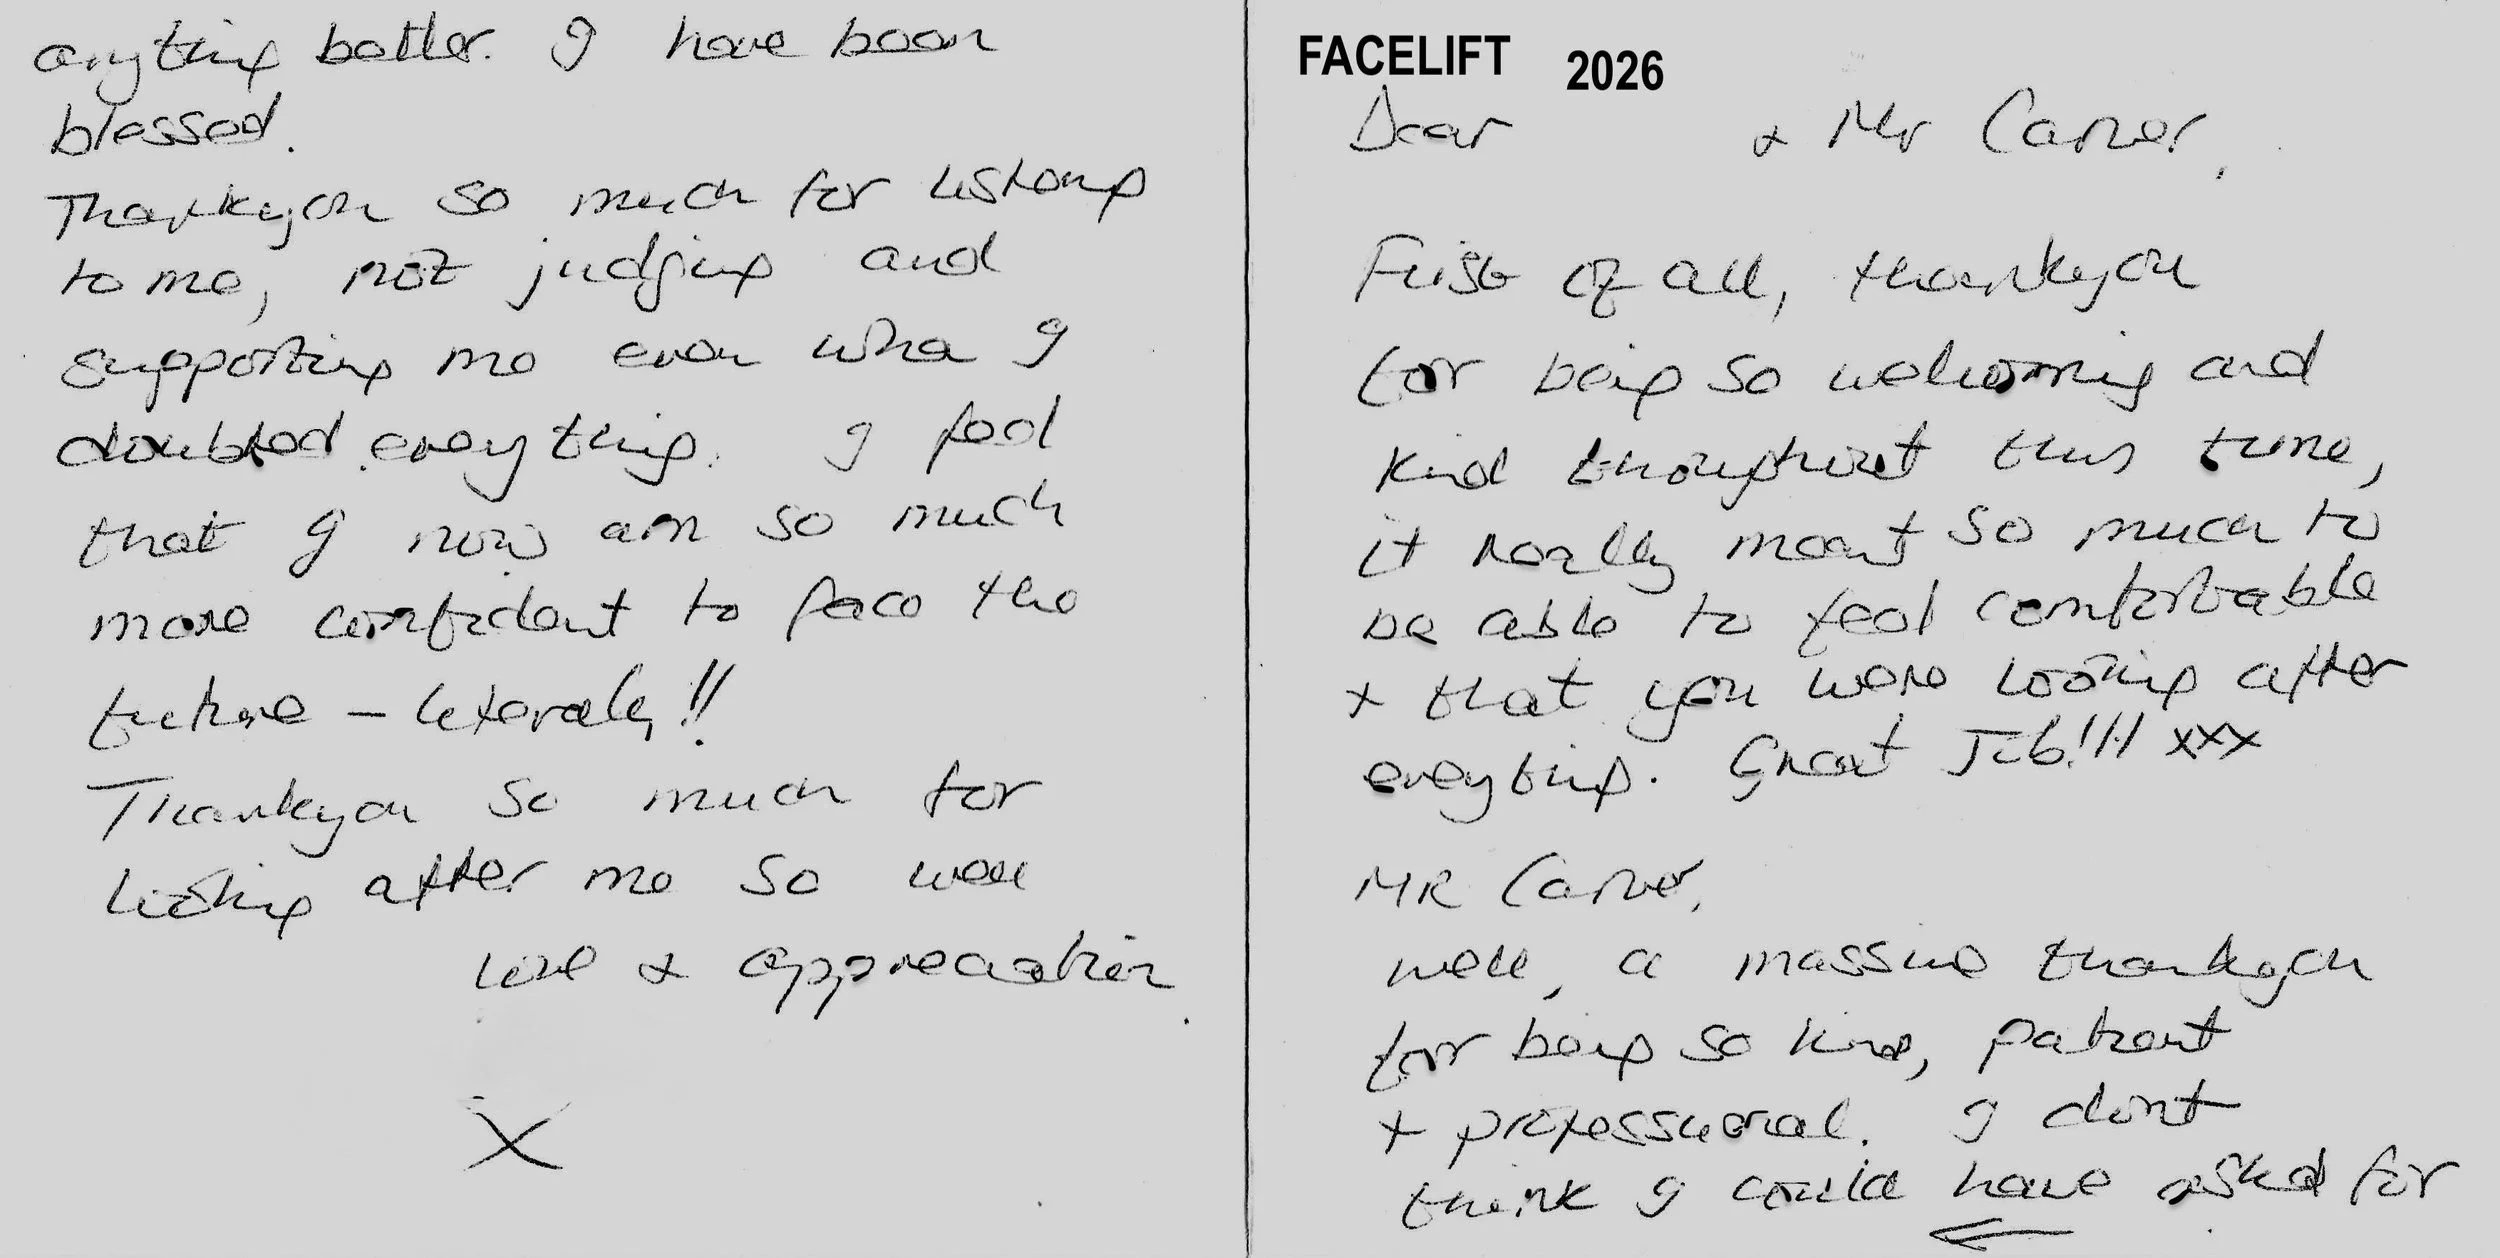 FACELIFT 2026
Dear + Mr Carver,
First of all, thankyou
for being so welcoming and
kind throughout this time,
it really meant so much to
be able to feel comfortable
+ that you were looking after
everything. Great Job!!!! xxx
MR Carver,
well, a massive thankyou
for being so kind, patient
+ professional. I dont
think I could have asked for
anything better. I have been
blessed.
Thankyou so much for listening
to me, not judging and
supporting me even when I
doubted everything. I feel
that I now am so much
more confident to face the
future - literally!!
Thankyou so much for
looking after me so well
love + appreciation.
X